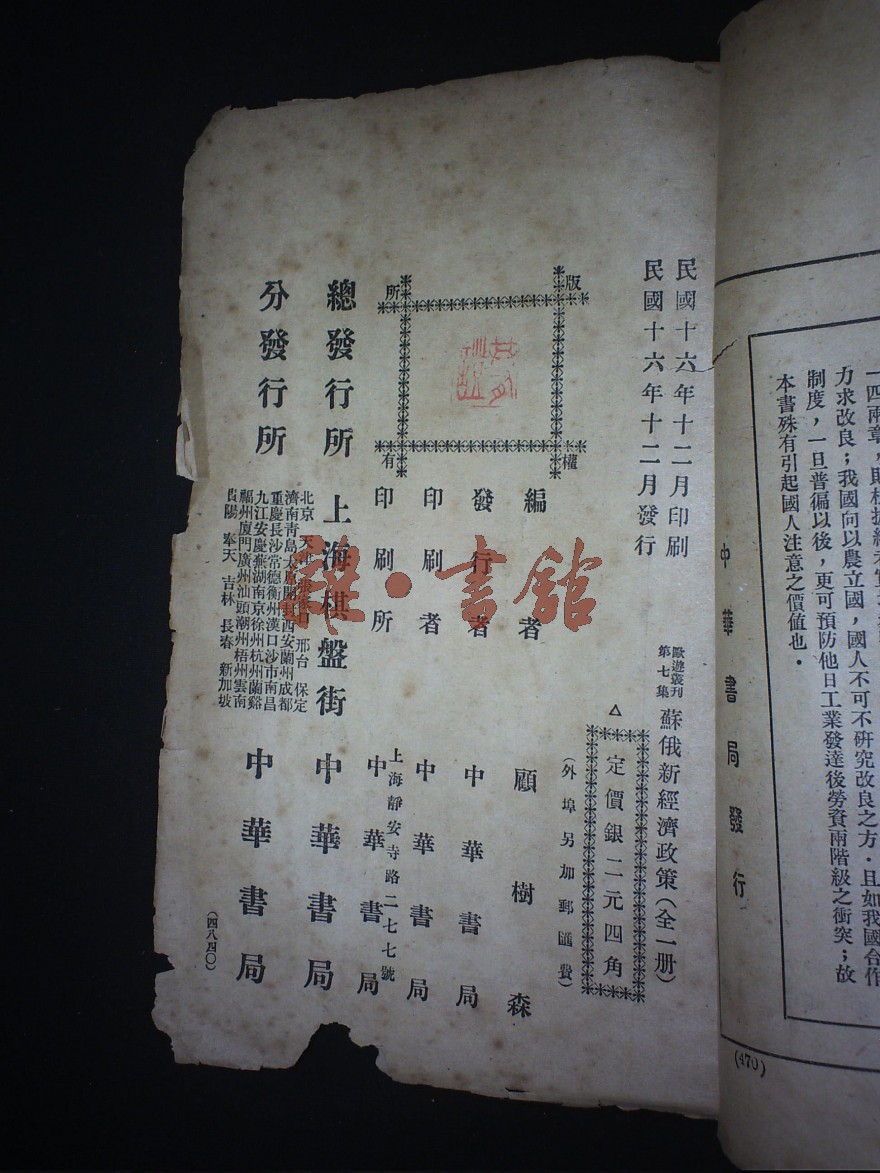 一四兩章，則根據
力求改良；我國向以農立國，國人不可不研究改良之方．且如我國合作
制度，一旦普徧以後，更可預防他日工業發達後勞資兩階級之衝突；故
本書殊有引起國人注意之價值也．
中華書局發行
(470)
民國十六年十二月印刷
民國十六年十二月發行
歐遊叢刊第七集
蘇俄新經濟政策（全一册）
△定價銀二元四角
（外埠另加郵匯費）
版權所有
編者 顧樹森
發行者 中華書局
印刷者 中華書局
印刷所 上海靜安寺路二七七號 中華書局
總發行所 上海棋盤街 中華書局
分發行所
北京 天津 邢台 保定
濟南青島太原開封西安蘭州成都
重慶長沙常德衡州漢口沙市南昌
九江安慶蕪湖南京徐州杭州蘭谿
福州廈門廣州汕頭潮州梧州雲南
貴陽 奉天 吉林 長春 新加坡
中華書局
（四八四〇）
雜·書館